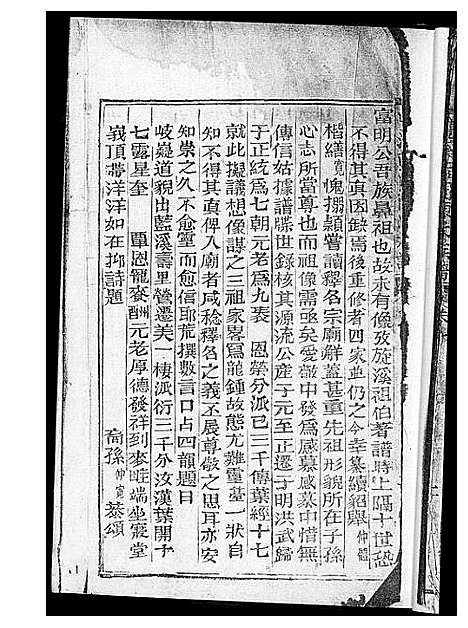 富明公吾族鼻祖也故未有像攷旋溪祖伯著譜時上隔十世恐
不得其真因錄焉後重修者四家並仍之今幸纂續紹舉仲體
楷繕寬愧搨穎嘗讀釋名宗廟辭蓋甚重先祖形貌所在子孫
心志所當尊也而祖像需亟矣爰徵中發爲感慕感慕中惜無
傳信姑據譜牒世錄核其源流公產于元至正遷于明洪武歸
于正統爲七朝元老爲九袠 恩榮分派已三千傳葉經十七
就此擬議想像謀之三祖家畧爲龍鍾故態尢難臺一狀自
知不得其真俾入廟者咸稔釋名之義丕展尊敬之思耳亦安
知崇之久不愈靈而愈信耶荒撰數言口占四韻題曰
岐嶷道貌出藍溪壽里營遷美一棲派衍三千分汝漢葉開十
七露星奎 覃恩寵麥酬元老厚德發祥到麥畦端坐寢堂
峩頂帶洋洋如在抑詩題
裔孫仲寬恭頌